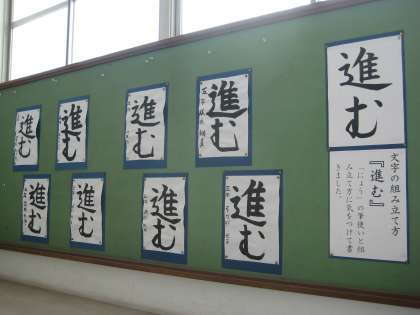 進む
進む
進む
進む
進む
進む
進む
進む
進む
文字の組み立て方
『進む』
「にょう」の筆使いと組
み立て方に気をつけて書
きました。